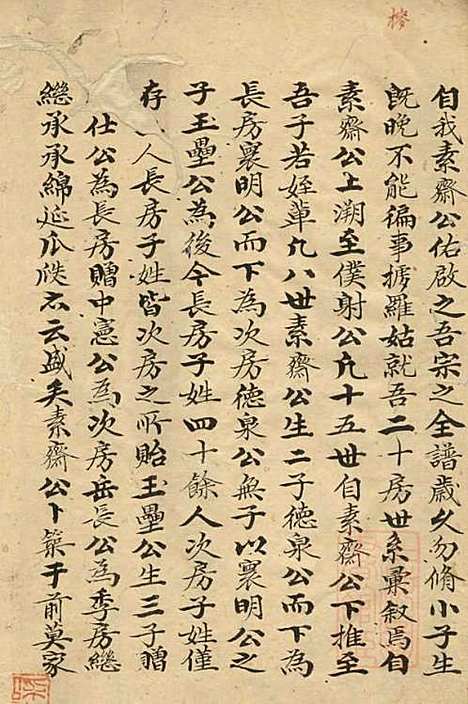 自我素齋公佑啟之吾宗之全譜歲久勿脩小子生
既晚不能徧事摭羅姑就吾二十房世系彙叙焉自
素齋公上溯至僕射公凡十五世自素齋公下推至
吾子若姪輩凡八世素齋公生二子德泉公而下為
長房襄明公而下為次房德泉公無子以襄明公之
子玉壘公為後今長房子姓四十餘人次房子姓僅
存 人長房子姓皆次房之所貽玉壘公生三子贈
仕公為長房贈中憲公為次房岳長公為季房繼
繼承承綿延瓜瓞不云盛矣素齋公卜築于前莫家